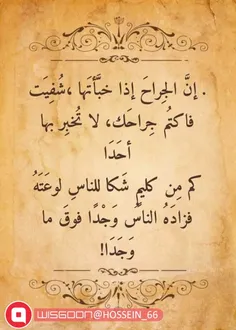 . إنَّ الجِراحَ إذا خبَّأتَها ،شُفِيَت
فاكتُم جِراحَك، لا تُخبِر بها
أحَدَا
كم مِن كليمٍ شَكا للناسِ لوعَتَهُ
فزادَهُ الناسُ وَجْدًا فوقَ ما
وَجَدَا!
WISGOON@HOSSEIN_66